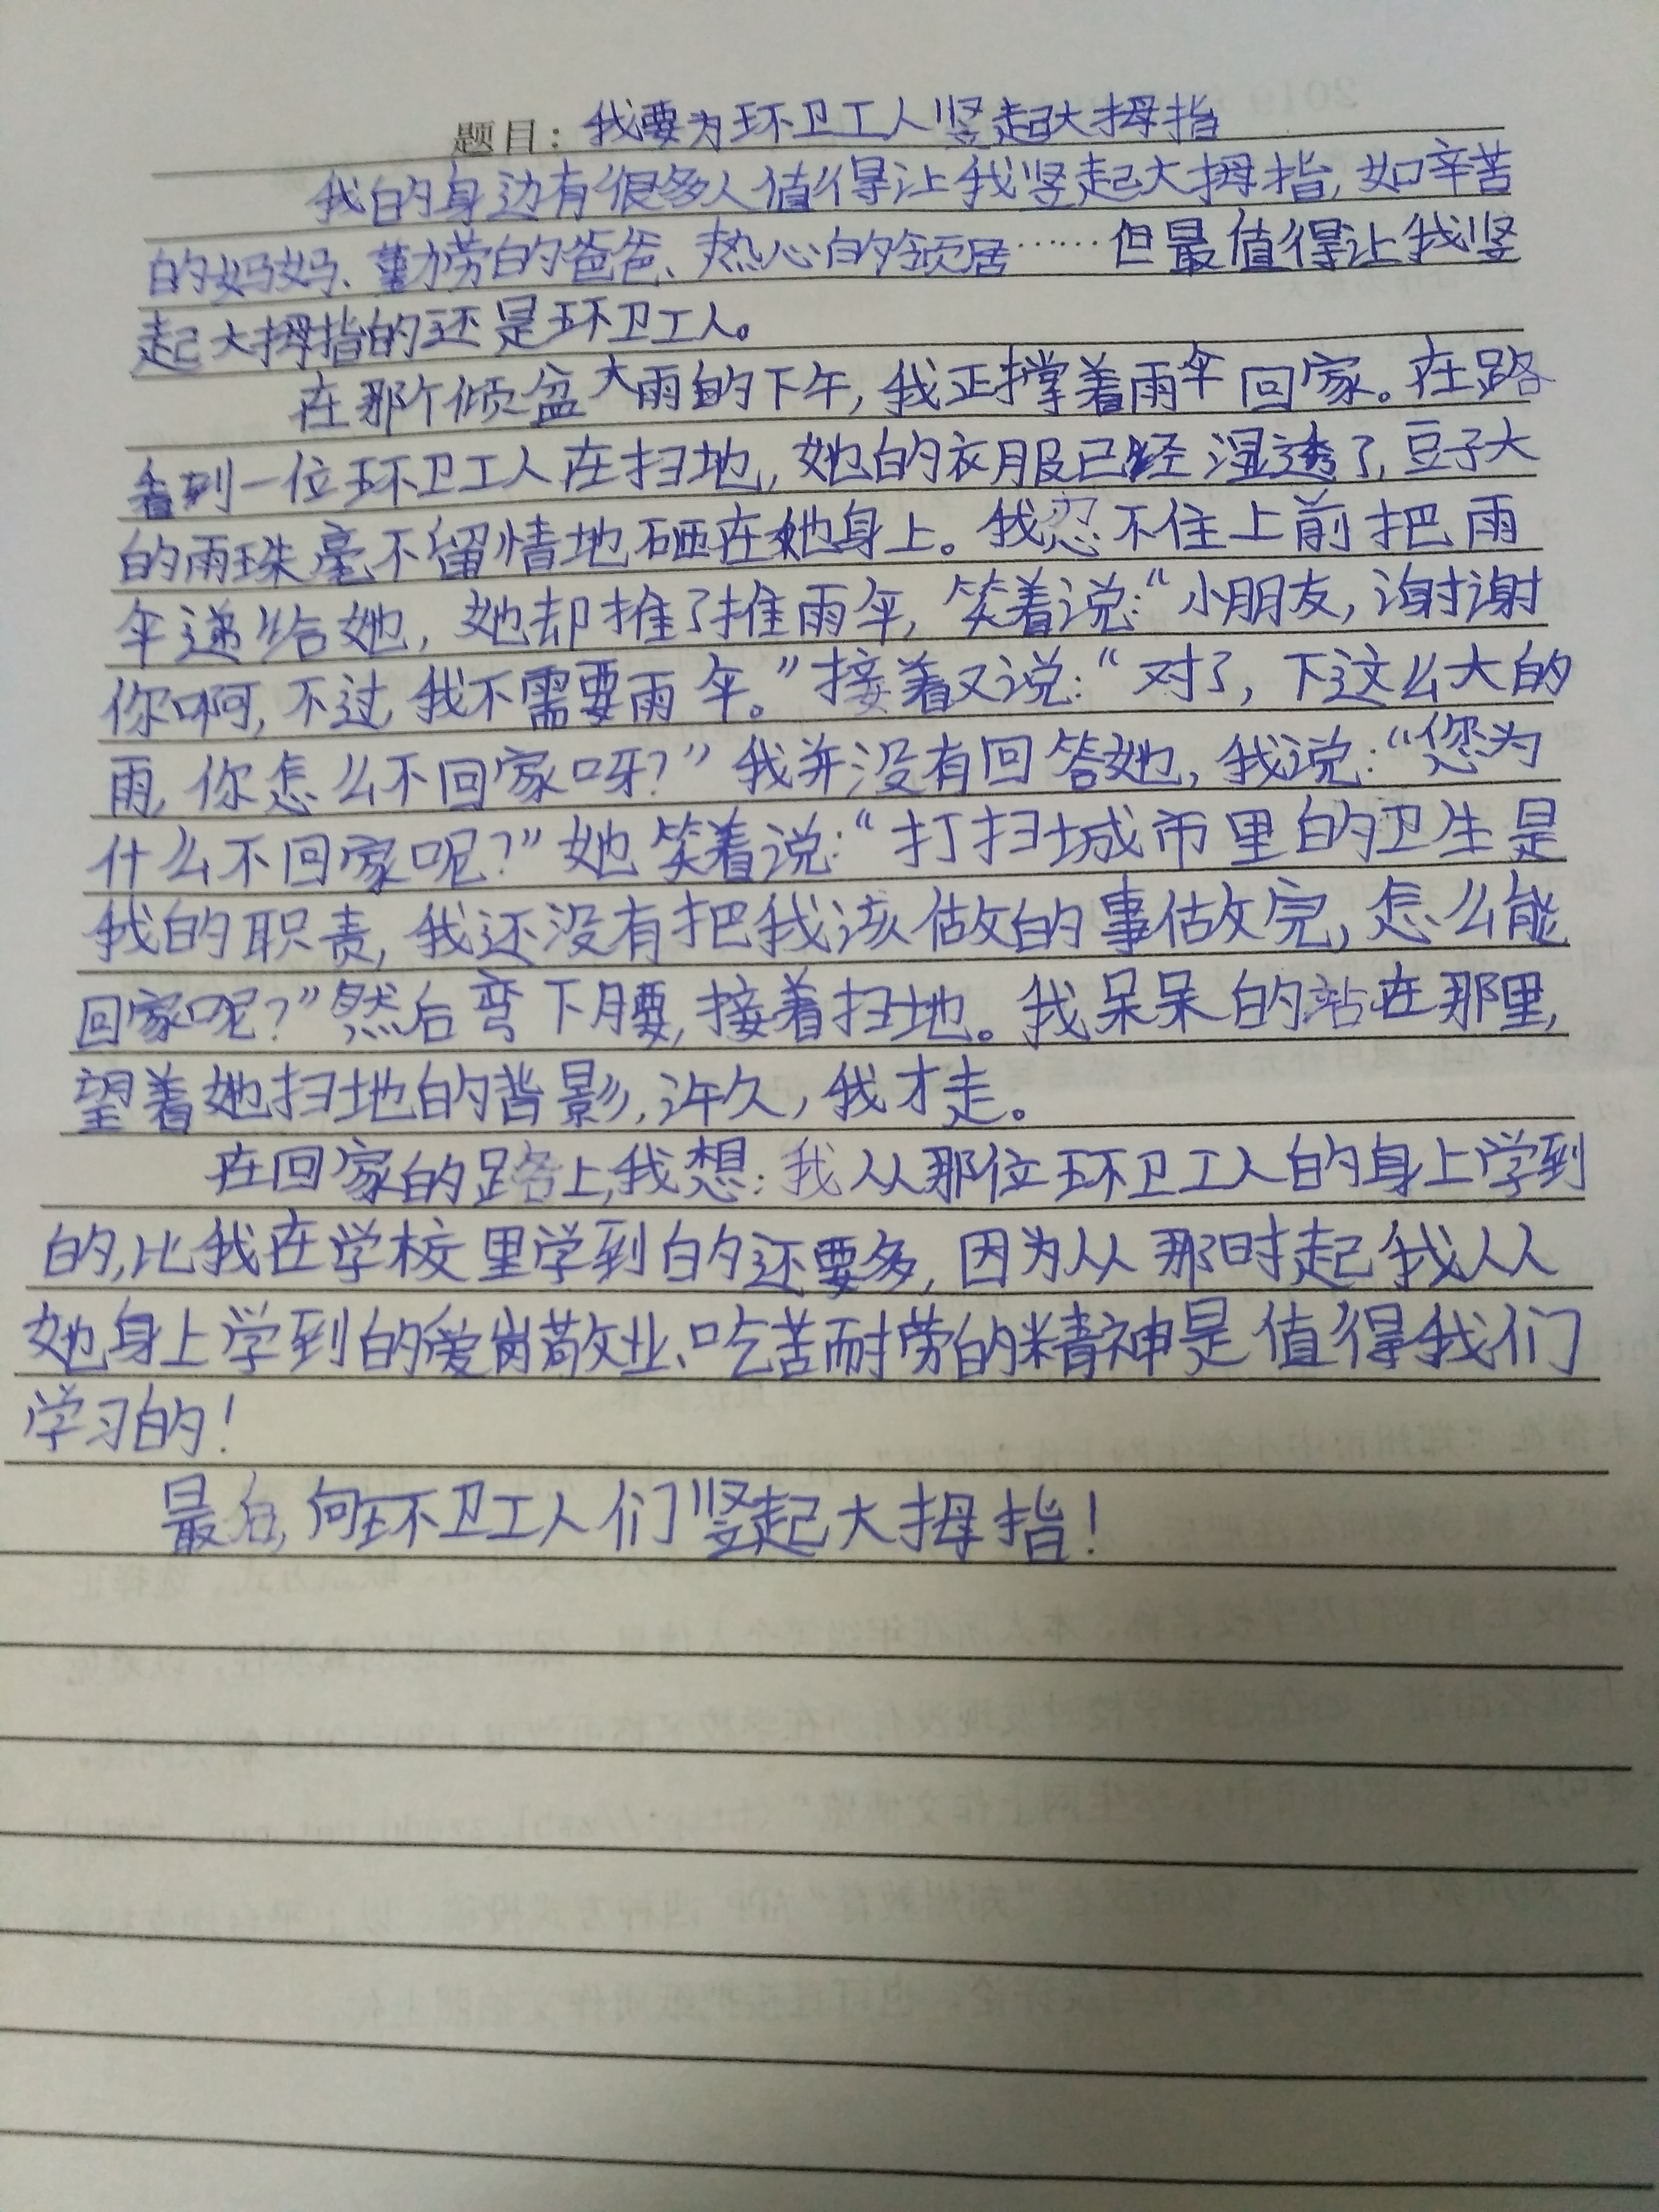 题目：我要为环卫工人竖起大拇指
我的身边有很多人值得让我竖起大拇指，如辛苦
的妈妈、勤劳的爸爸、热心的领居……但最值得让我竖
起大拇指的还是环卫工人。
在那个倾盆大雨的下午，我正撑着雨伞回家。在路
看到一位环卫工人在扫地，她的衣服已经湿透了，豆子大
的雨珠毫不留情地砸在她身上。我忍不住上前把雨
伞递给她，她却推了推雨伞，笑着说：“小朋友，谢谢
你啊，不过，我不需要雨伞。”接着又说：“对了，下这么大的
雨，你怎么不回家呀？”我并没有回答她，我说：“您为
什么不回家呢？”她笑着说：“打扫城市里的卫生是
我的职责，我还没有把我该做的事做完，怎么能
回家呢？”然后弯下腰，接着扫地。我呆呆的站在那里，
望着她扫地的背影，许久，我才走。
在回家的路上，我想：我从那位环卫工人的身上学到
的，比我在学校里学到的还要多，因为从那时起我从
她身上学到的爱岗敬业、吃苦耐劳的精神是值得我们
学习的！
最后，向环卫工人们竖起大拇指！